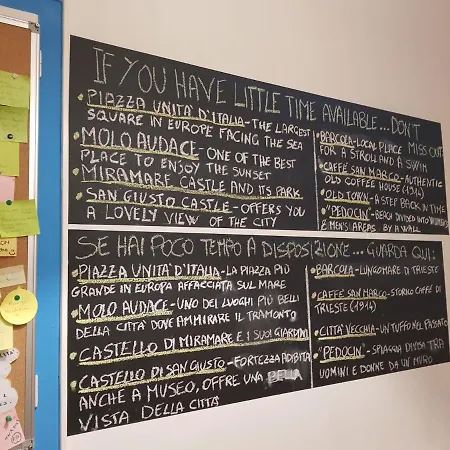 IF YOU HAVE LITTLE TIME AVAILABLE... DON'T MISS OUT:
• PIAZZA UNITÀ D'ITALIA - THE LARGEST
SQUARE IN EUROPE FACING THE SEA
• MOLO AUDACE - ONE OF THE BEST
PLACE TO ENJOY THE SUNSET
• MIRAMARE CASTLE AND ITS PARK
• SAN GIUSTO CASTLE - OFFERS YOU
A LOVELY VIEW OF THE CITY
• BARCOLA - LOCAL PLACE
FOR A STROLL AND A SWIM
• CAFFÈ SAN MARCO - AUTHENTIC
OLD COFFEE HOUSE (1914)
• OLD TOWN - A STEP BACK IN TIME
• "PEDOCIN" - BEACH DIVIDED INTO WOMEN'S
& MEN'S AREAS BY A WALL
SE HAI POCO TEMPO A DISPOSIZIONE... GUARDA QUI:
• PIAZZA UNITÀ D'ITALIA - LA PIAZZA PIÙ
GRANDE IN EUROPA AFFACCIATA SUL MARE
• MOLO AUDACE - UNO DEI LUOGHI PIÙ BELLI
DELLA CITTÀ DOVE AMMIRARE IL TRAMONTO
• CASTELLO DI MIRAMARE E I SUOI GIARDINI
• CASTELLO DI SAN GIUSTO - FORTEZZA ADIBITA
ANCHE A MUSEO, OFFRE UNA BELLA
VISTA DELLA CITTÀ
• BARCOLA - LUNGOMARE DI TRIESTE
• CAFFÈ SAN MARCO - STORICO CAFFÈ DI
TRIESTE (1914)
• CITTÀ VECCHIA - UN TUFFO NEL PASSATO
• "PEDOCIN" - SPIAGGIA DIVISA TRA
UOMINI E DONNE DA UN MURO